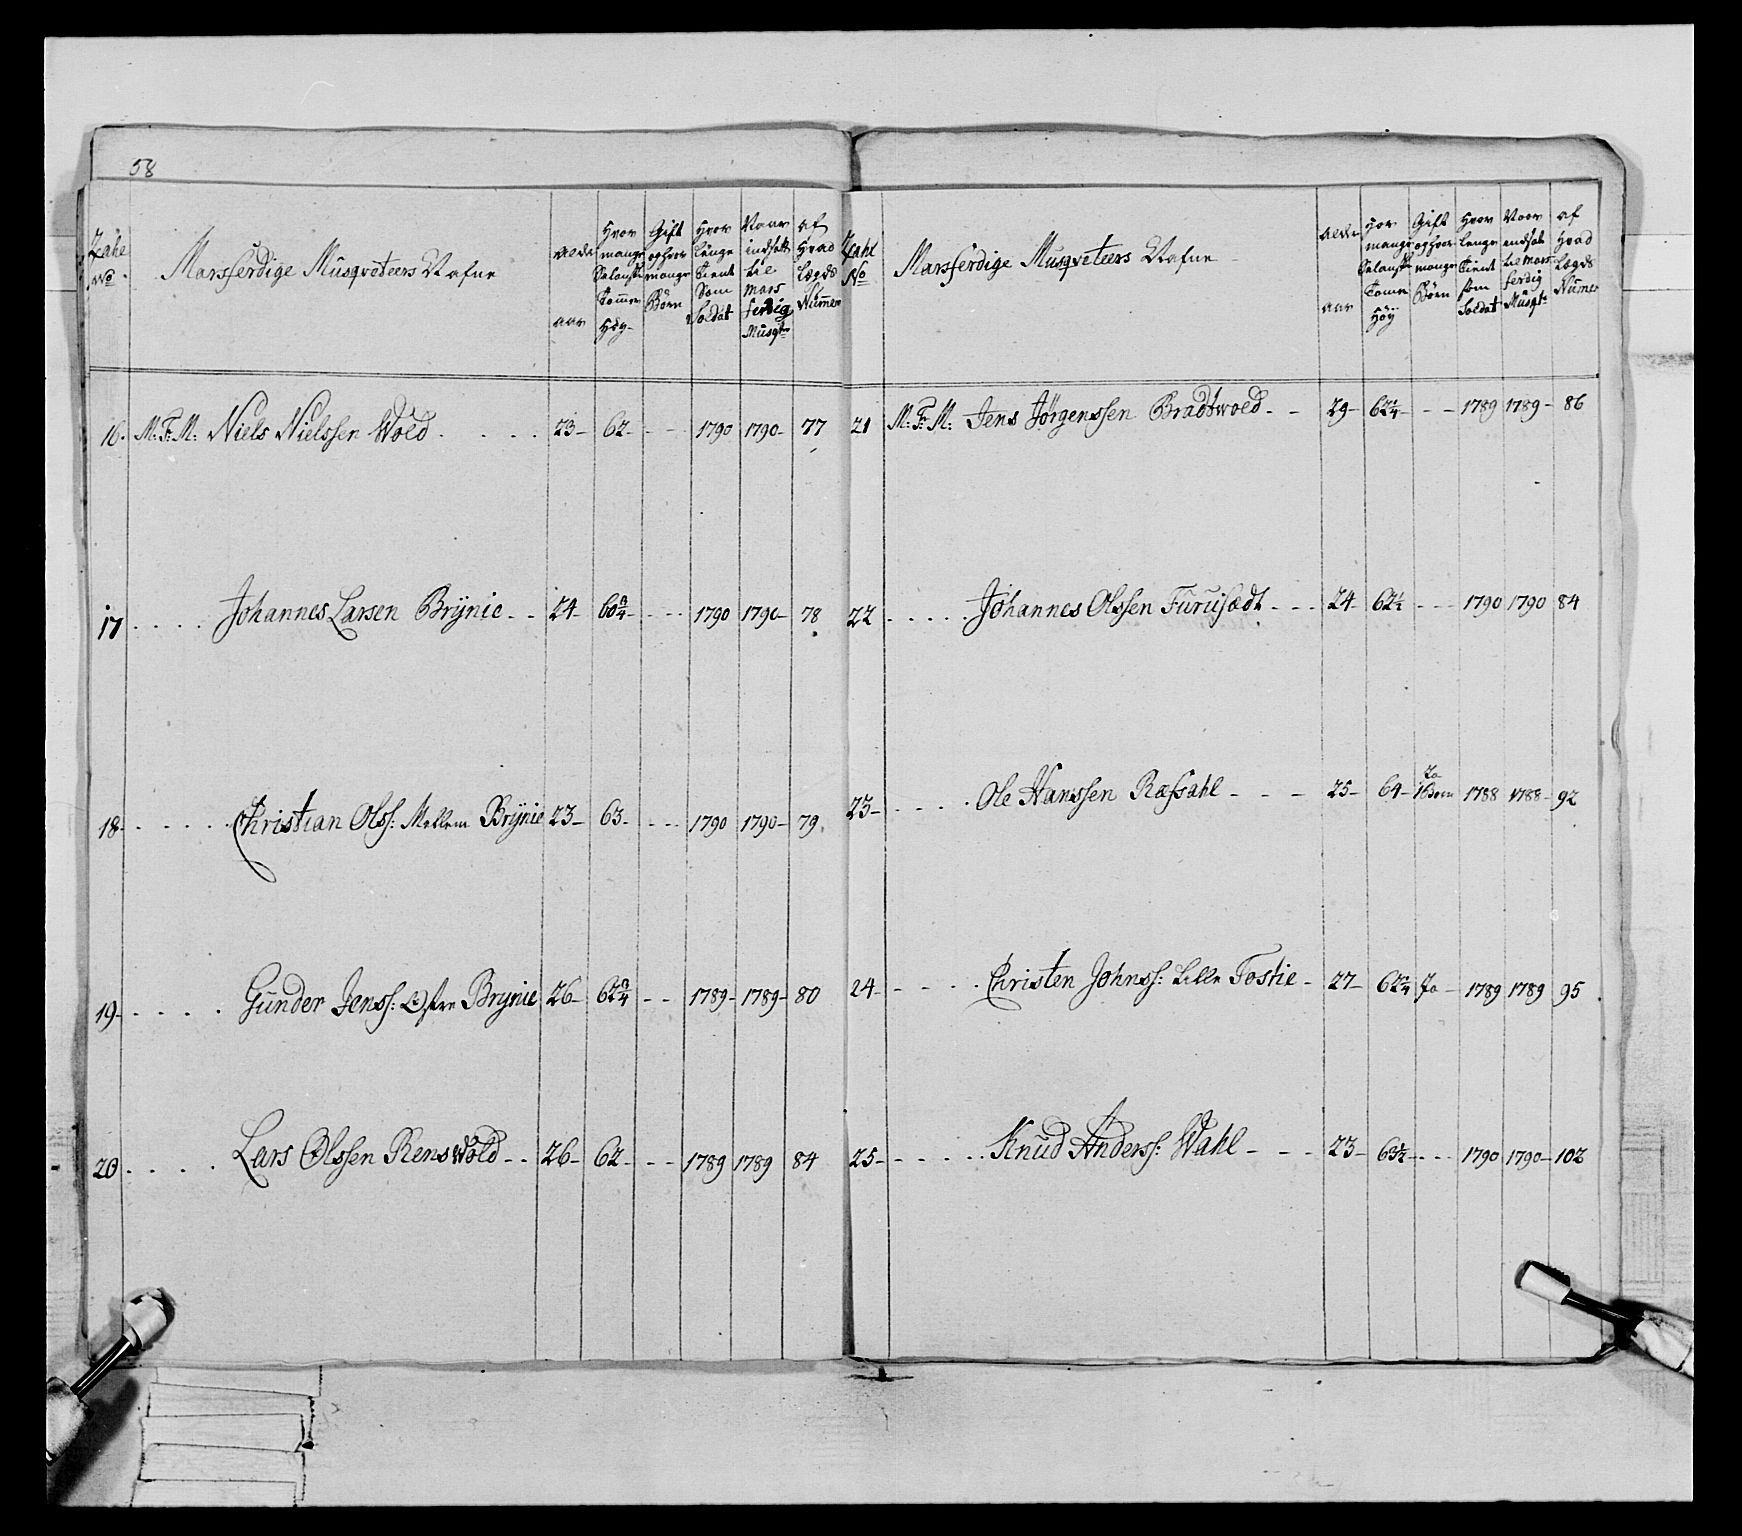 58
Zahl No. Marsferdige Musqveteers Nafne Alder aar Hvor mange Selansk Tommer Høy Gift og hvor mange Børn Hvor lenge tient Som Soldat Naar indsatt til mars ferdig Musqt: af Hvad Lægds Nummer
16. M: F: M: Niels Nielssen Wold . . . . . 23 – 62 – - - - 1790 1790 – 77
17 . . . . Johannes Larsen Brÿnie . . 24 – 60¾ – - - - 1790 1790 – 78
18 – . . . . . Christian Olss: Mellem Brÿnie 23 – 63 – - - - 1790 1790 – 79
19 – . . . . Gunder Jenss: Østre Brÿnie 26 – 62¾ - - 1789 – 1789 – 80
20 . . . . Lars Olssen Renswold - - 26 – 62 – - - 1789 1789 84
Zahl No Marsferdige Musqveteers Nafne Alder aar Hvor mange Selansk Tommer Høÿ Gift og hvor mange Børn Hvor lenge tient som Soldat Naar indsat til mars ferdig Musqt: af Hvad Lægds Numer
21 M: F: M: Jens Jörgenssen Bradtwold - - 29 – 62¼ - - - 1789 1789 – 86
22 . . . . . Johannes Olssen Furusædt - - - 24 – 62½ - - - 1790 1790 84
23 – . . . . Ole Hanssen Ræfsahl - - - 25 – 64 – Ja 1 Barn 1788 1788 – 92
24 – - - - . . Christen Johnss: Lille Tostie – 27 – 62¼ Ja – 1789 1789 95
25 – - - - . . Knud Anderss: Wahl - - - 23 – 63½ – - - - 1790 1790 – 102